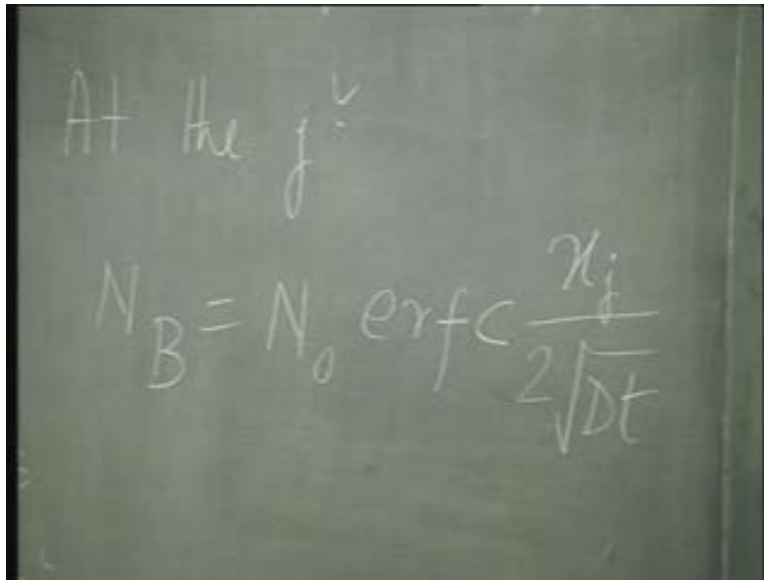 At the j^n
N_B = N_0 erfc x_j / 2√Dt